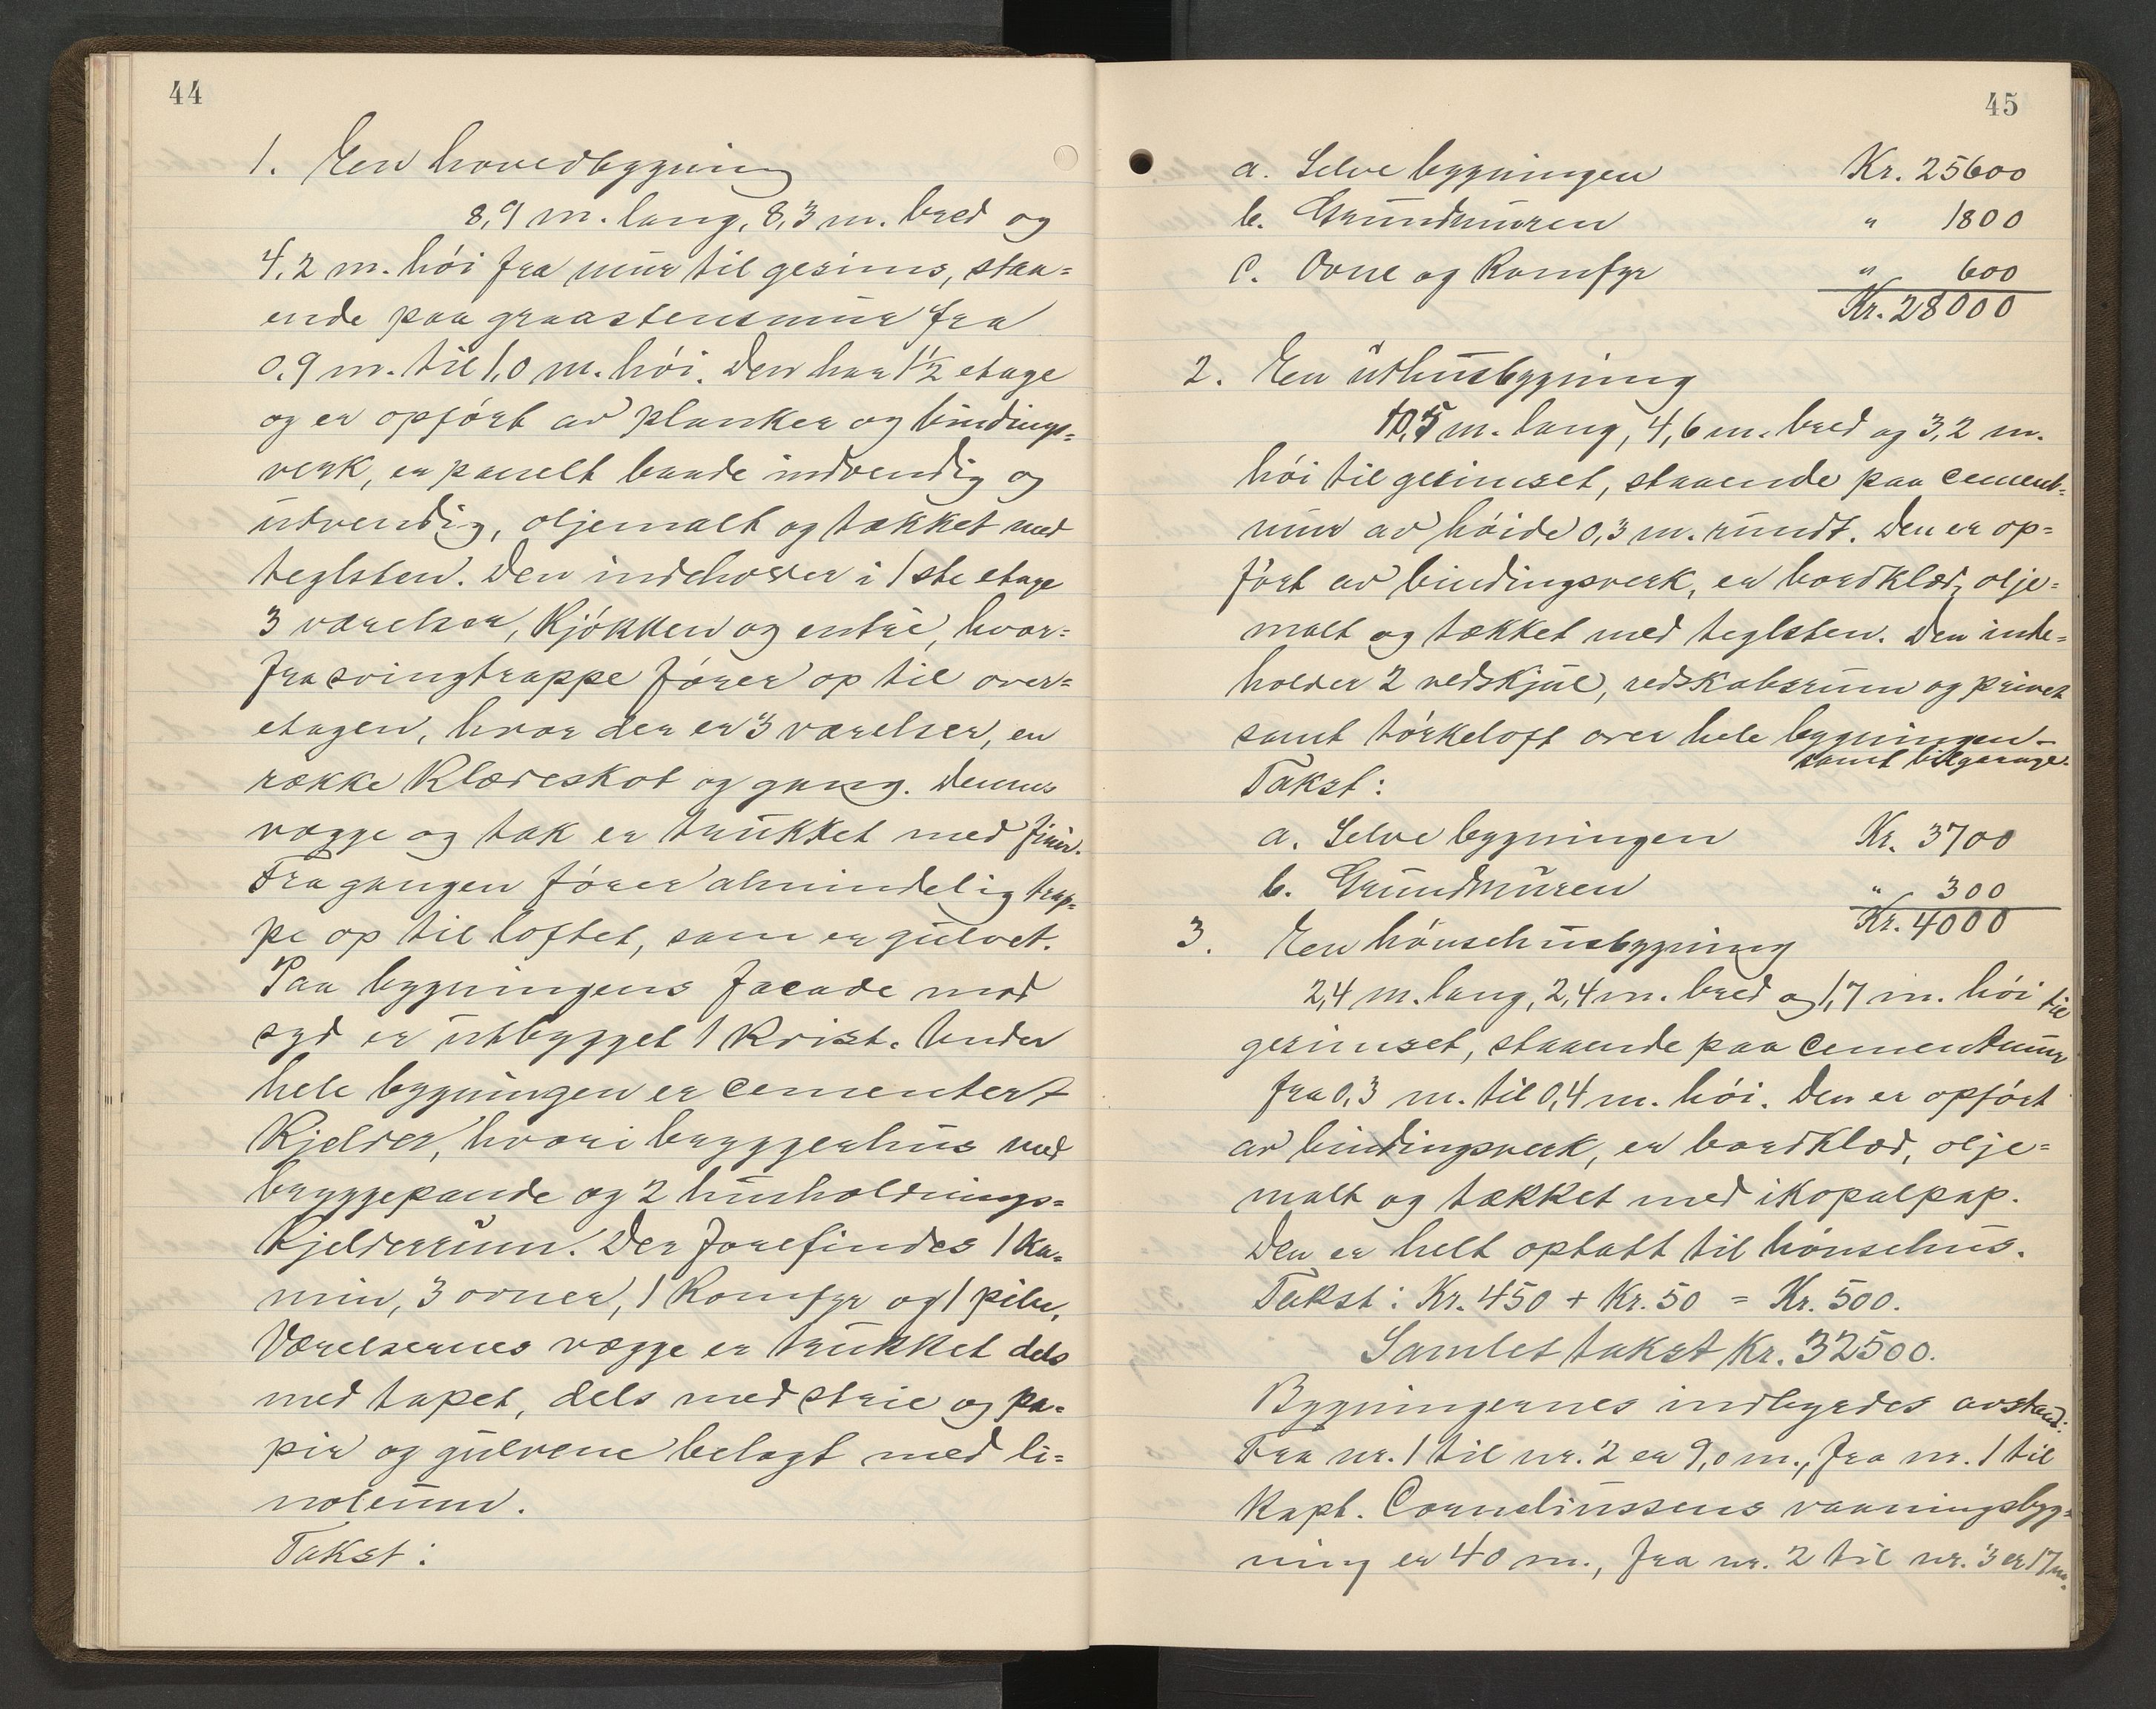 44
1. En hovedbygning
8,9 m. lang, 8,3 m. bred og
4,2 m. hói fra mur til gesims, staa=
ende paa graastensmur fra
0,9 m. til 1,0 m. hói. Den har 1½ etage
og er opfórt av planker og bindings=
verk, er panelt baade indvendig og
utvendig, oljemalt og tækket med
teglsten. Den indeholder i 1ste etage
3 værelser, Kjókken og entré, hvor=
fra svingtrappe fórer op til over=
etagen, hvor der er 3 værelser, en
række Klædeskot og gang. Dennes
vægge og tak er trukket med finér.
Fra gangen fórer almindelig trap=
pe op til loftet, som er gulvet.
Paa bygningens facade mod
syd er utbygget 1 Kvist. Under
hele bygningen er cementert
Kjelder, hvori bryggerhus med
bryggepande og 2 husholdnings=
Kjelderrum. Der forefindes 1 Ka=
min, 3 ovner, 1 Komfyr og 1 pibe.
Værelsernes vægge er trukket dels
med tapet, dels med strie og pa=
pir og gulvene belagt med li=
noleum.
Takst:
45
a. Selve bygningen Kr. 25600
b. Grundmuren " 1800
c. Ovne og Komfyr " 600
Kr. 28000
2. En uthusbygning
10,5 m. lang, 4,6 m. bred og 3,2 m.
hói til gesimset, staaende paa cement=
mur av hóide 0,3 m. rundt. Den er op=
fórt av bindingsverk, er bordklæd, olje=
malt og tækket med teglsten. Den inde=
holder 2 vedskjul, redskabsrum og privet
samt tórkeloft over hele bygningen
samt bilgarage.
Takst:
a. Selve bygningen Kr. 3700
b. Grundmuren " 300
Kr. 4000
3. En hónsehusbygning
2,4 m. lang, 2,4 m. bred og 1,7 m. hói til
gesimset, staaende paa cementmur
fra 0,3 m. til 0,4 m. hói. Den er opfórt
av bindingsverk, er bordklæd, olje=
malt og tækket med ikopalpap.
Den er helt optatt til hónsehus.
Takst: Kr. 450 + Kr. 50 = Kr. 500.
Samlet takst Kr. 32500.
Bygningernes indbyrdes avstand:
Fra nr. 1 til nr. 2 er 9,0 m., fra nr. 1 til
Kapt. Corneliussens vaaningsbyg=
ning er 40 m., fra nr. 2 til nr. 3 er 17 m.